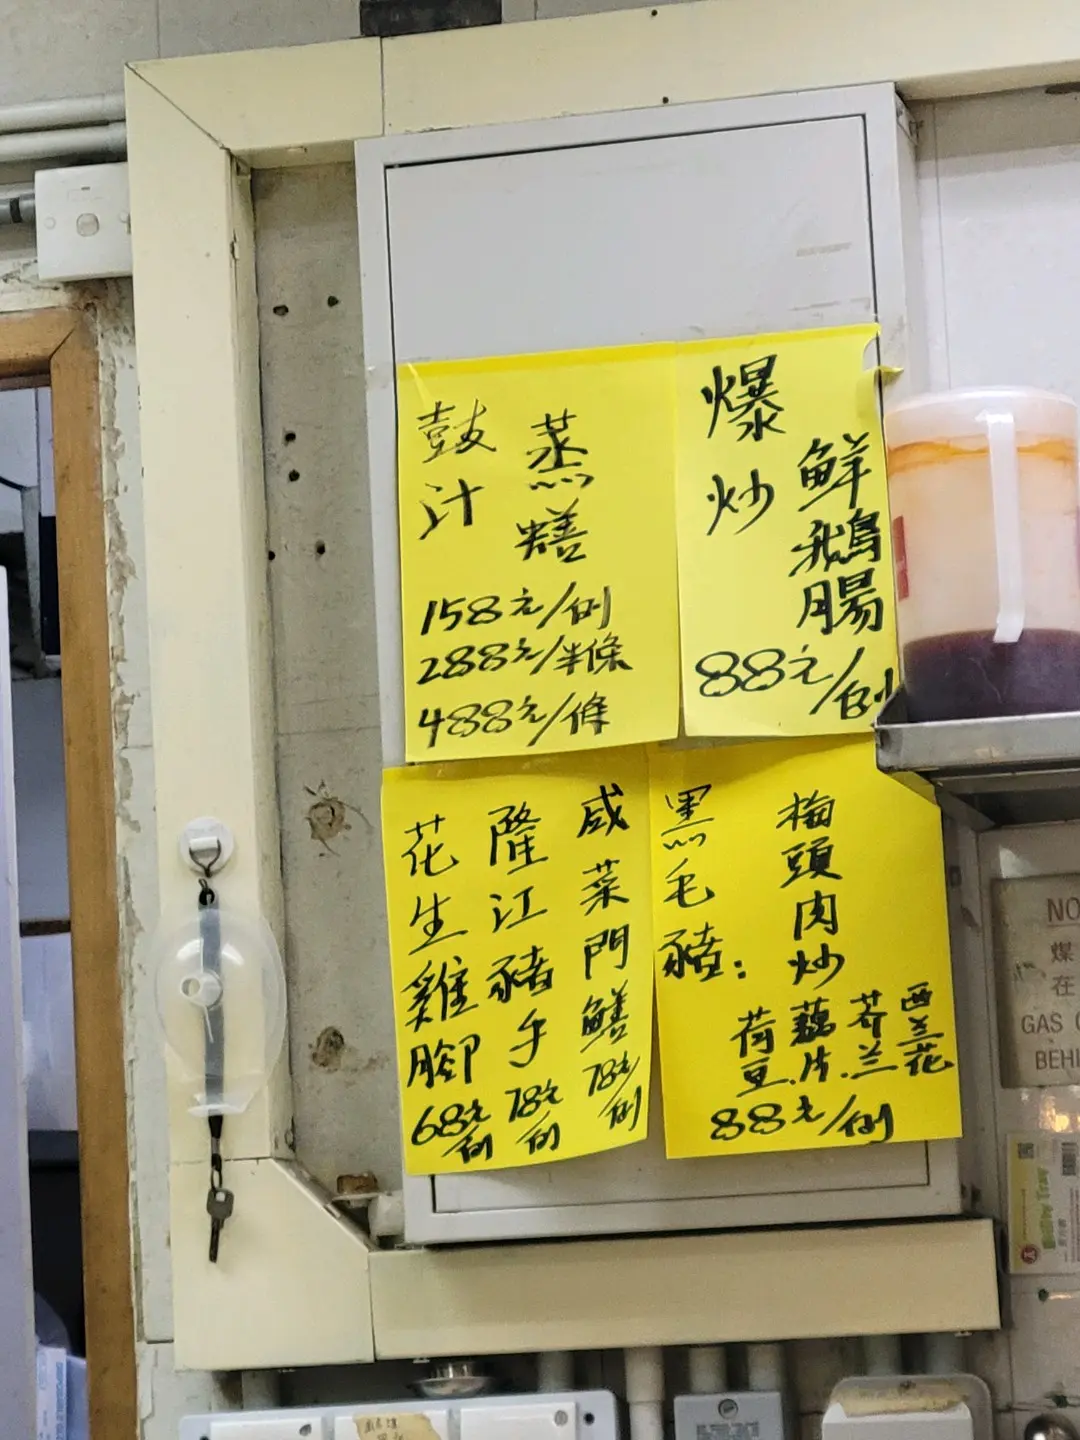 鼓汁
蒸鱔
158元/例
288元/半條
488元/條
爆炒
鮮鵝腸
88元/例
花生雞腳
68元/例
隆江豬手
78元/例
咸菜門鱔
78元/例
黑毛豬：
梅頭肉炒
荷豆.
藕片.
芥兰
西兰花
88元/例
NO
煤
在
GAS
BEHI